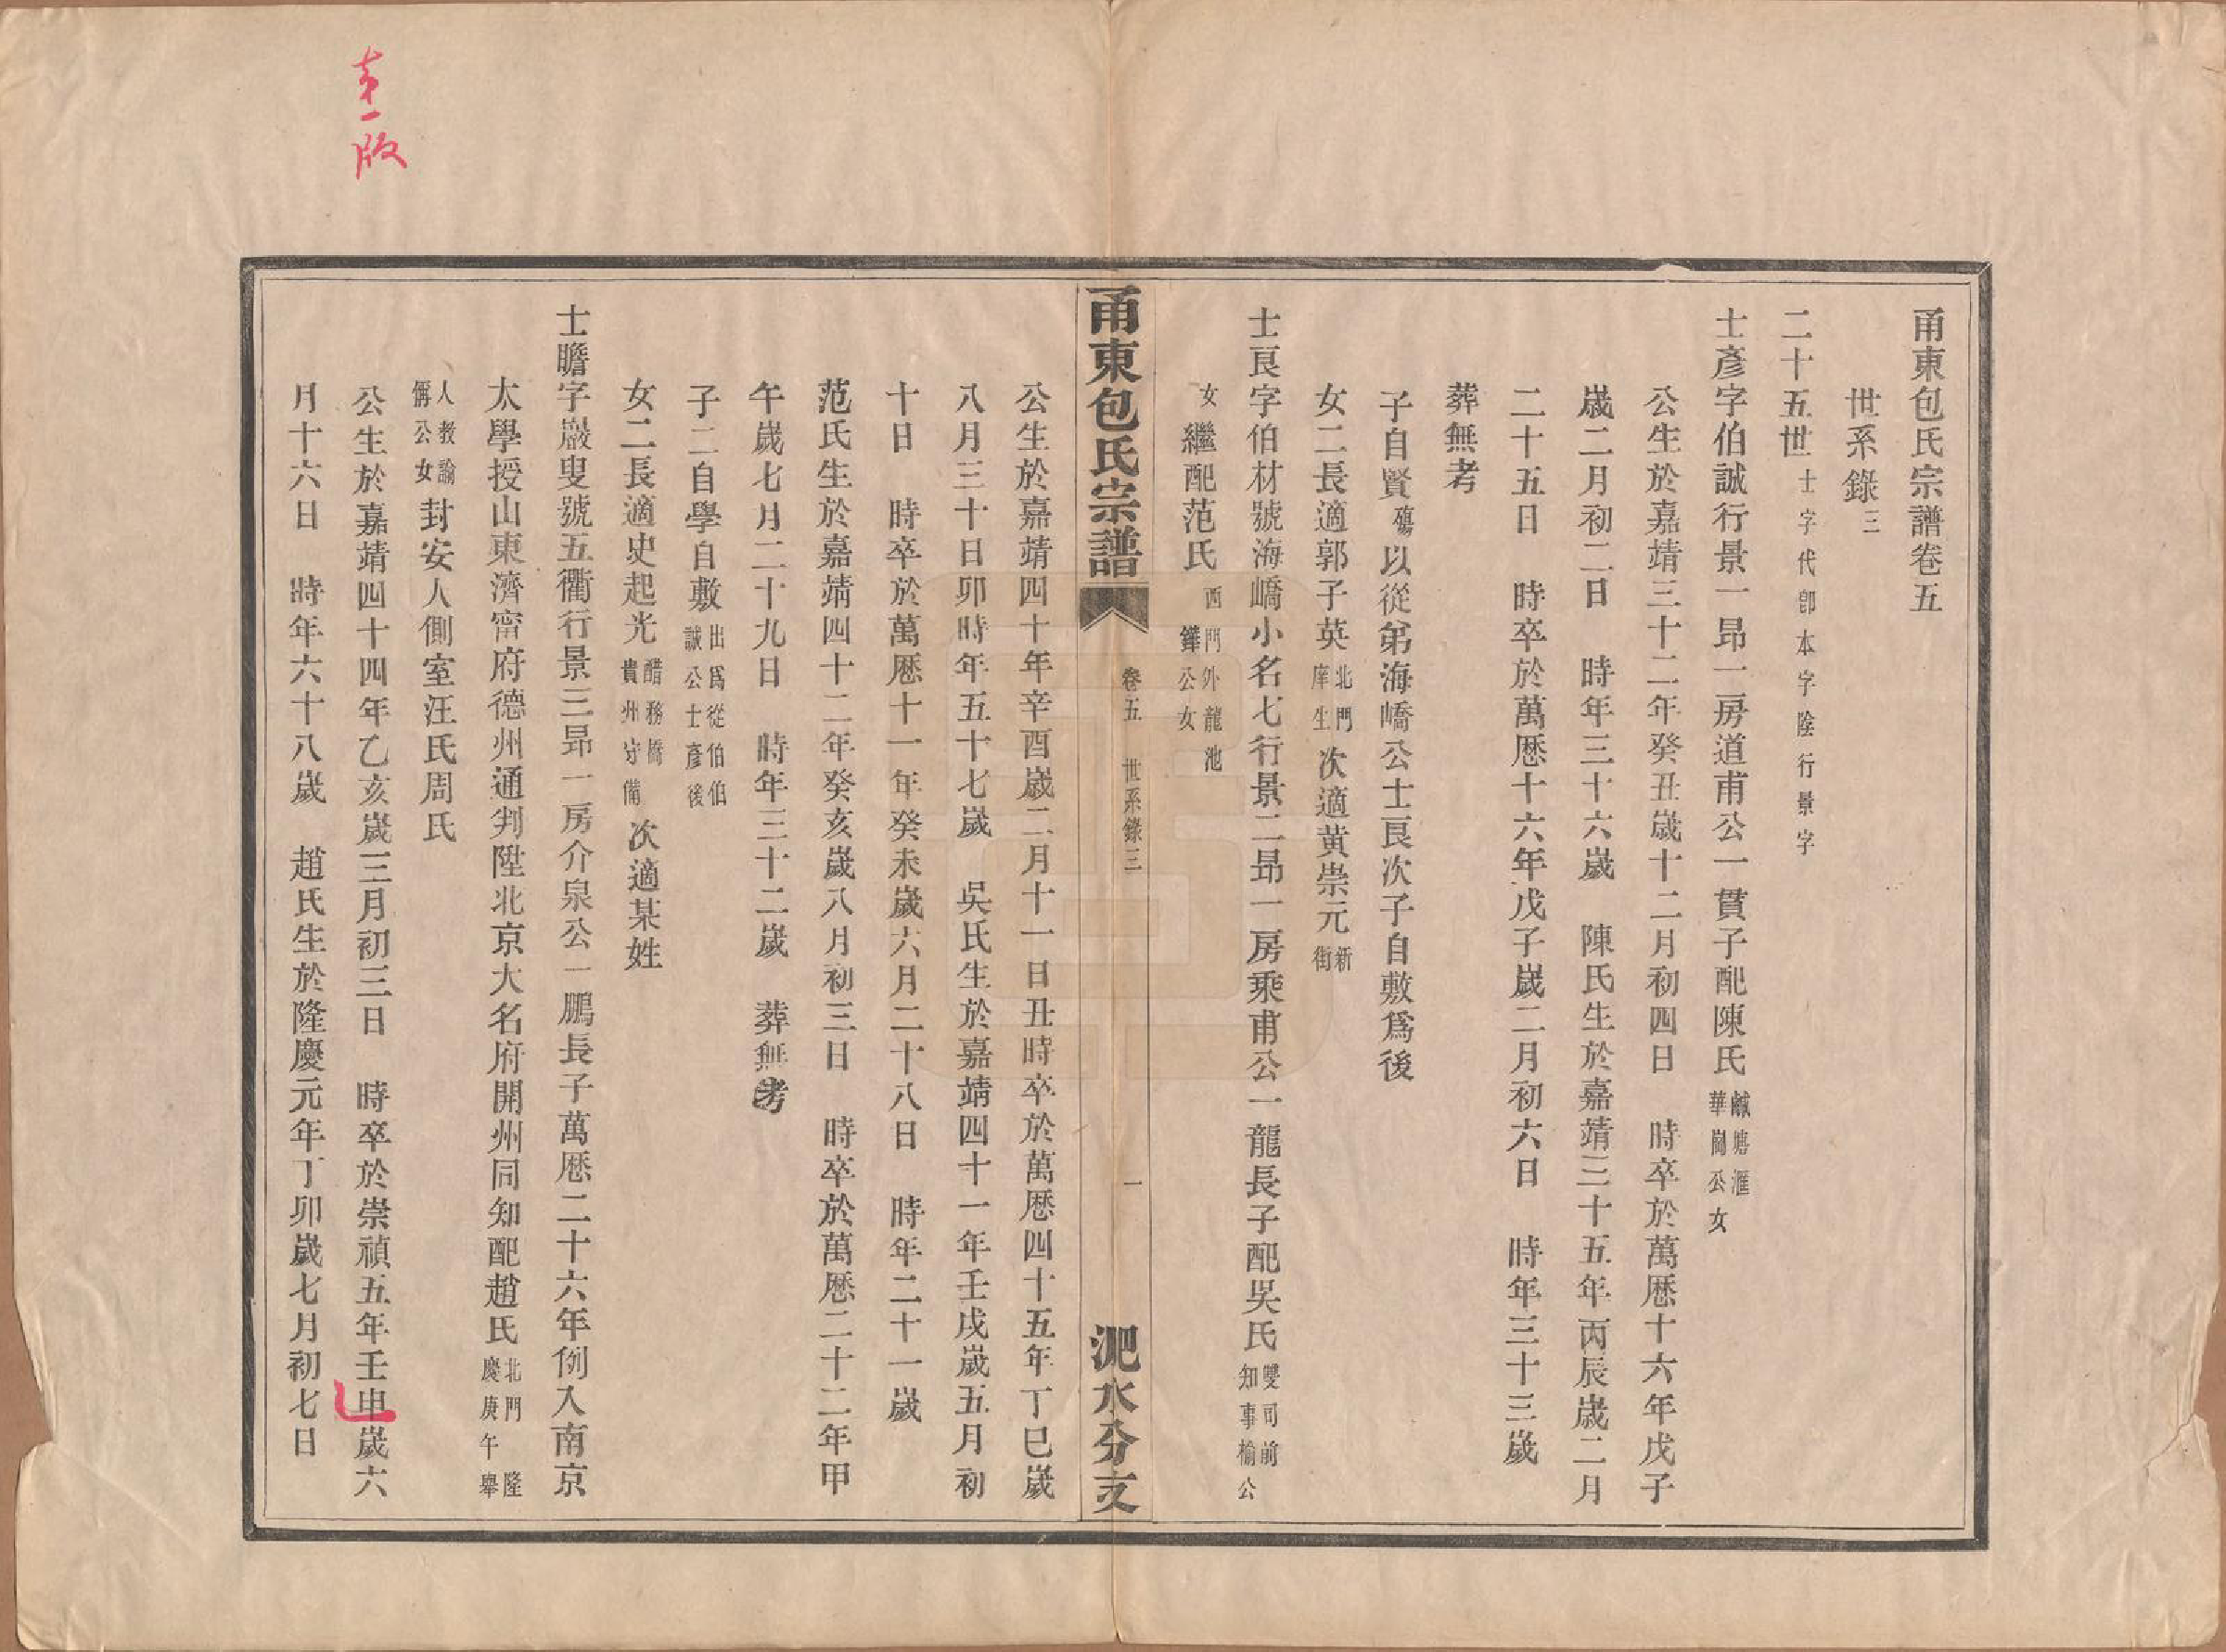 甬東包氏宗譜卷五
世系錄三
二十五世士字代卽本字陰行景字
士彥字伯誠行景一昂一房道甫公一貫子配陳氏鹹塘滙華崗公女
公生於嘉靖三十二年癸丑歲十二月初四日　時卒於萬厯十六年戊子
歲二月初二日　時年三十六歲　陳氏生於嘉靖三十五年丙辰歲二月
二十五日　時卒於萬厯十六年戊子歲二月初六日　時年三十三歲
葬無考
子自賢殤以從弟海嶠公士艮次子自敷爲後
女二長適郭子英北門庠生次適黃崇元新街
士艮字伯材號海嶠小名七行景二昂一房乘甫公一龍長子配吳氏雙司前知事楡公
女繼配范氏西門外龍池鏵公女
甬東包氏宗譜　卷五　世系錄三　一　淝水分支
公生於嘉靖四十年辛酉歲二月十一日丑時卒於萬厯四十五年丁巳歲
八月三十日卯時年五十七歲　吳氏生於嘉靖四十一年壬戌歲五月初
十日　時卒於萬厯十一年癸未歲六月二十八日　時年二十一歲
范氏生於嘉靖四十二年癸亥歲八月初三日　時卒於萬厯二十二年甲
午歲七月二十九日　時年三十二歲　葬無考
子二自學自敷出爲從伯伯誠公士彥後
女二長適史起光醋務橋貴州守備次適某姓
士瞻字巖叟號五衢行景三昂一房介泉公一鵬長子萬厯二十六年例入南京
太學授山東濟甯府德州通判陞北京大名府開州同知配趙氏北門隆慶庚午舉
人教諭偁公女封安人側室汪氏周氏
公生於嘉靖四十四年乙亥歲三月初三日　時卒於崇禎五年壬申歲六
月十六日　時年六十八歲　趙氏生於隆慶元年丁卯歲七月初七日
壹版